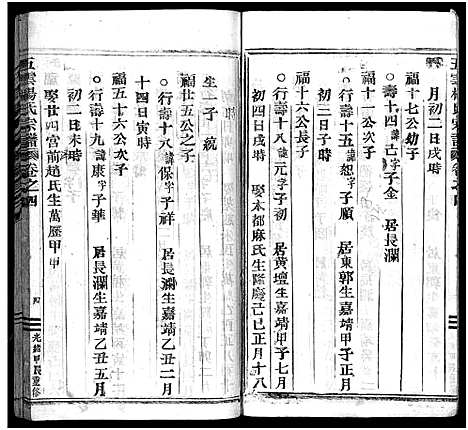 月初二日戌時
福十七公幼子
○壽十四諱占字子金　居長瀾
福十一公次子
○行壽十五諱恕字子順　居東郭生嘉靖甲子正月
福十六公長子
○行壽十八諱元字子初　居黃壇生嘉靖甲子七月
初四日戌時　娶本都麻氏生隆慶己巳正月十八
生一子統
福廿五公之子
○行壽十八諱保字子祥　居長瀾生嘉靖乙丑二月
十四日寅時
福五十六公次子
○行壽十九諱康字子華　居長瀾生嘉靖乙丑五月
初二日未時
娶廿四宮前趙氏生萬歷甲申
五雲楊氏宗譜　卷之四
四
光緒甲辰重修